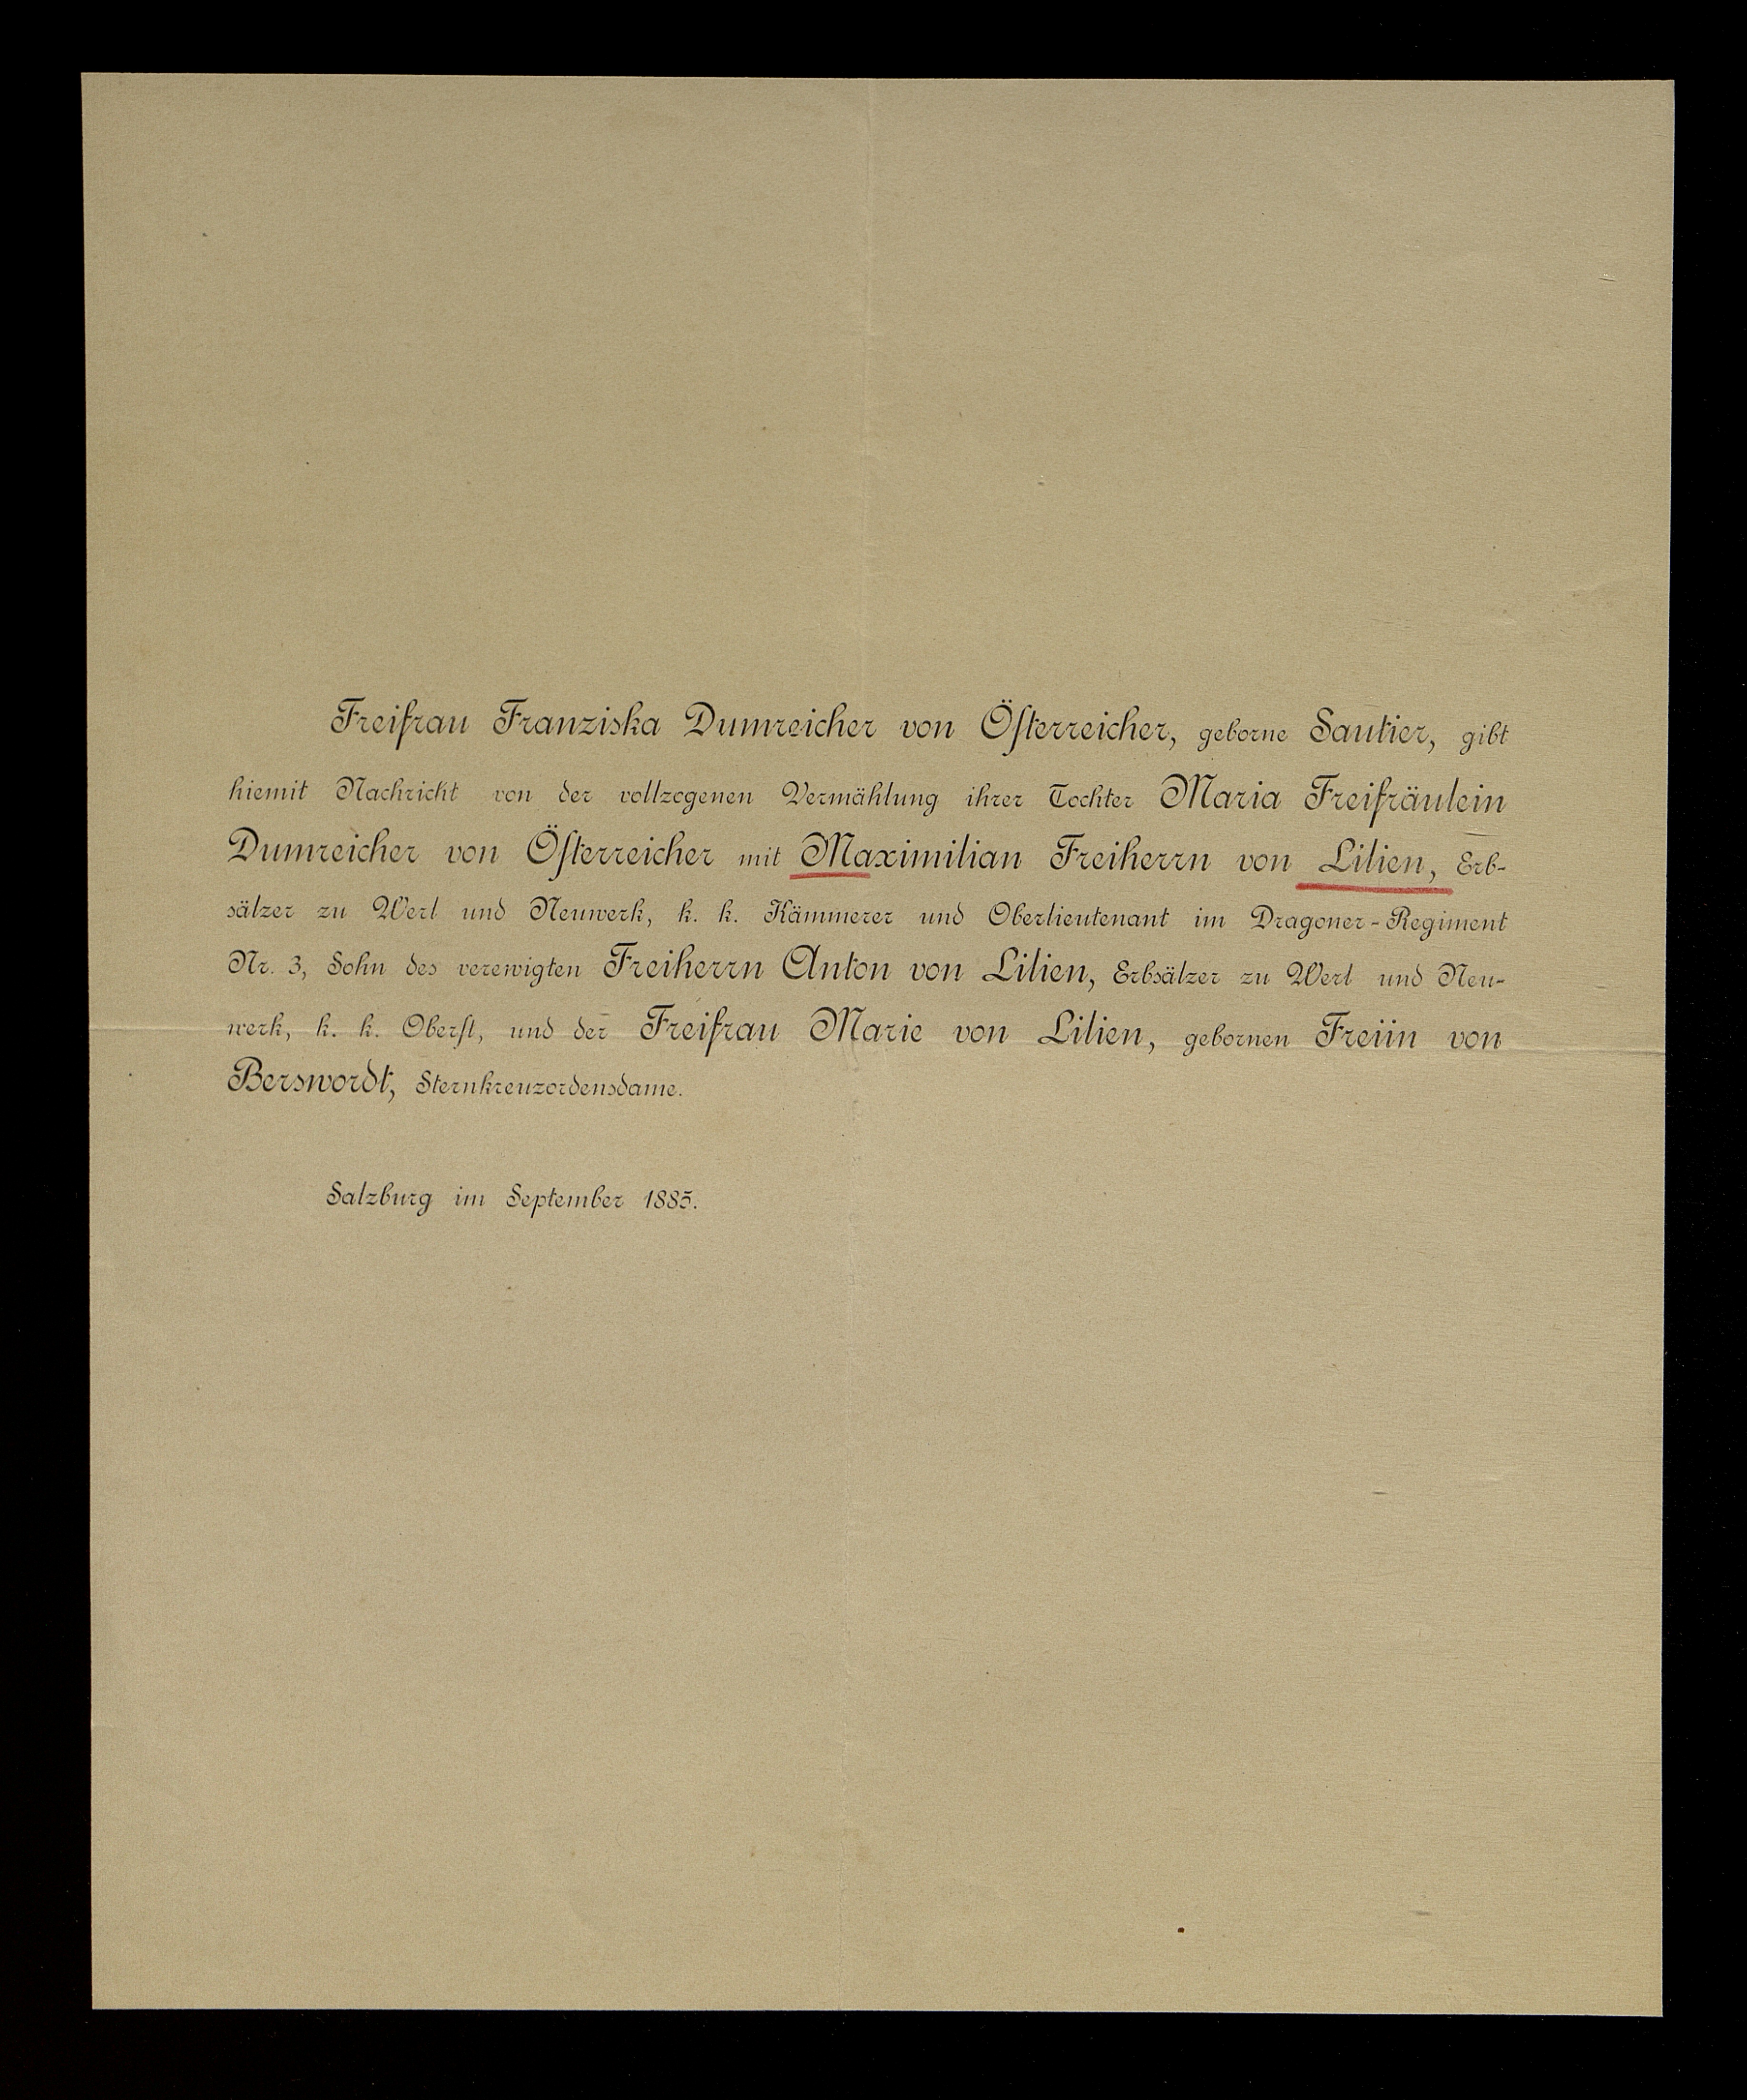 Freifrau Franziska Dumreicher von Öſterreicher, geborne Sautier, gibt
hiemit Nachricht von der vollzogenen Vermählung ihrer Tochter Maria Freifräulein
Dumreicher von Öſterreicher mit Maximilian Freiherrn von Lilien, Erb-
sälzer zu Werl und Neuwerk, k. k. Kämmerer und Oberlieutenant im Dragoner-Regiment
Nr. 3, Sohn des verewigten Freiherrn Anton von Lilien, Erbsälzer zu Werl und Neu-
werk, k. k. Oberſt, und der Freifrau Marie von Lilien, gebornen Freiin von
Berswordt, Sternkreuzordensdame.
Salzburg im September 1885.